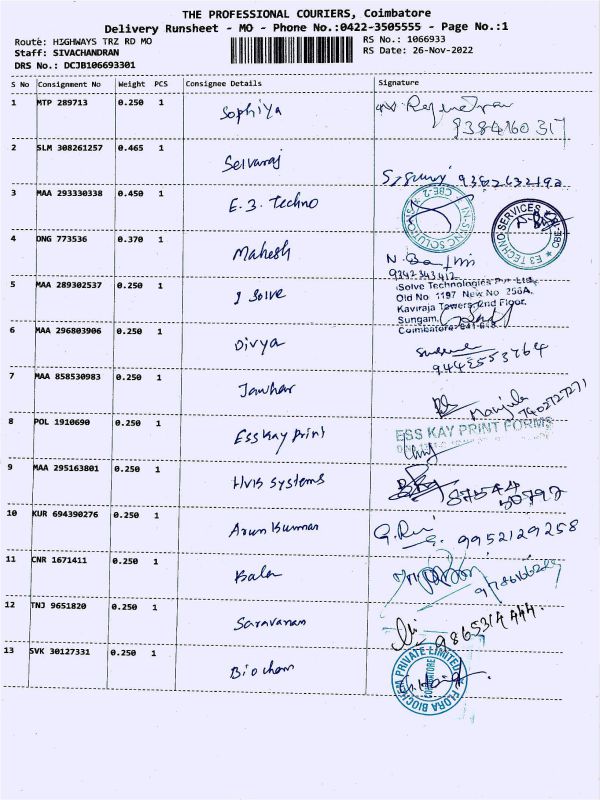 THE PROFESSIONAL COURIERS, Coimbatore
Delivery Runsheet - MO - Phone No.:0422-3505555 - Page No.:1
Route: HIGHWAYS TRZ RD MO
RS No.: 1066933
Staff: SIVACHANDRAN
RS Date: 26-Nov-2022
DRS No.: DCJB106693301
S No Consignment No Weight PCS Consignee Details Signature
1 MTP 289713 0.250 1 Sophiya
9384160317
2 SLM 308261257 0.465 1 Selvaraj
9362632192
3 MAA 293330338 0.450 1 E.3. Techno
E3 TECHNO SERVICES
4 ONG 773536 0.370 1 Mahesh
9242343412
5 MAA 289302537 0.250 1 I Solve
iSolve Technologies Pvt Ltd.
Old No 1197 New No 256A,
Kaviraja Towers, 2nd Floor,
Sungam,
Coimbatore-641 018
6 MAA 296803906 0.250 1 Divya
9442553764
7 MAA 858530983 0.250 1 Jawhar
Manjula
8 POL 1910690 0.250 1 Ess Kay Print
ESS KAY PRINT FORMS
9 MAA 295163801 0.250 1 HVB Systems
87544
50792
10 KUR 694390276 0.250 1 Arun Kumar
9952129258
11 CNR 1671411 0.250 1 Bala
12 TNJ 9651820 0.250 1 Saravanan
9865314444
13 SVK 30127331 0.250 1 Biochem
FLORA BIOCHEM PRIVATE LIMITED
COIMBATORE